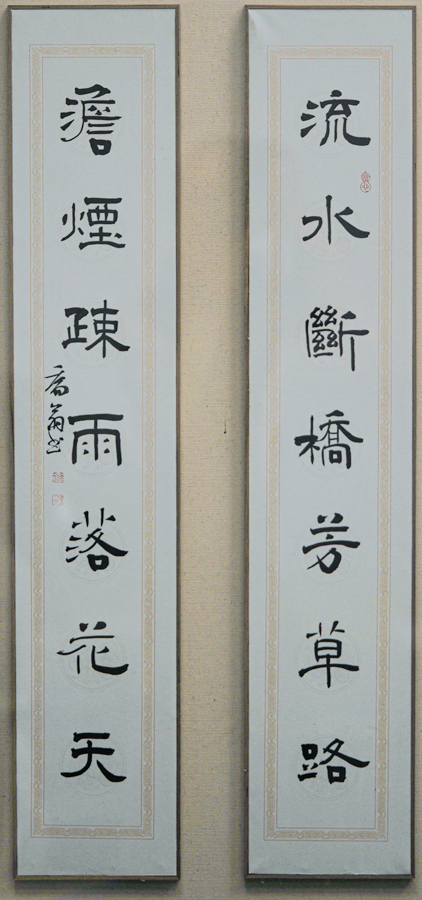 流水斷橋芳草路
澹煙疎雨落花天